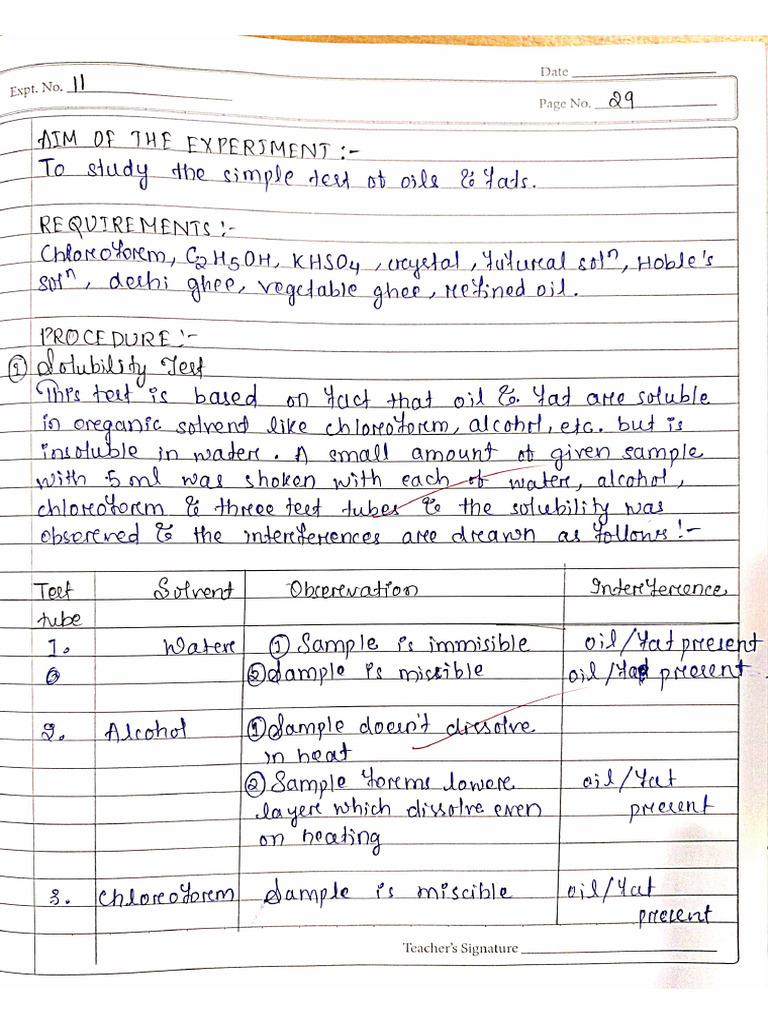 Date
Expt. No. 11
Page No. 29
AIM OF THE EXPERIMENT :-
To study the simple test of oils & fats.
REQUIREMENTS :-
Chloroform, C2H5OH, KHSO4, crystal, futural solⁿ, Hoble's
solⁿ, deshi ghee, vegetable ghee, refined oil.
PROCEDURE :-
① Solubility Test
This test is based on fact that oil & fat are soluble
in organic solvent like chloroform, alcohol, etc. but is
insoluble in water. A small amount of given sample
with 5 ml was shoken with each of water, alcohol,
chloroform & three test tubes & the solubility was
observed & the interferences are drawn as follows :-
Test tube Solvent Observation Interference
1. Water ① Sample is immisible oil/fat present
② Sample is miscible oil/fat present
2. Alcohol ① Sample doesn't dissolve
in heat
② Sample forms lower oil/fat
layer which dissolve even present
on heating
3. Chloroform Sample is miscible oil/fat
present
Teacher's Signature